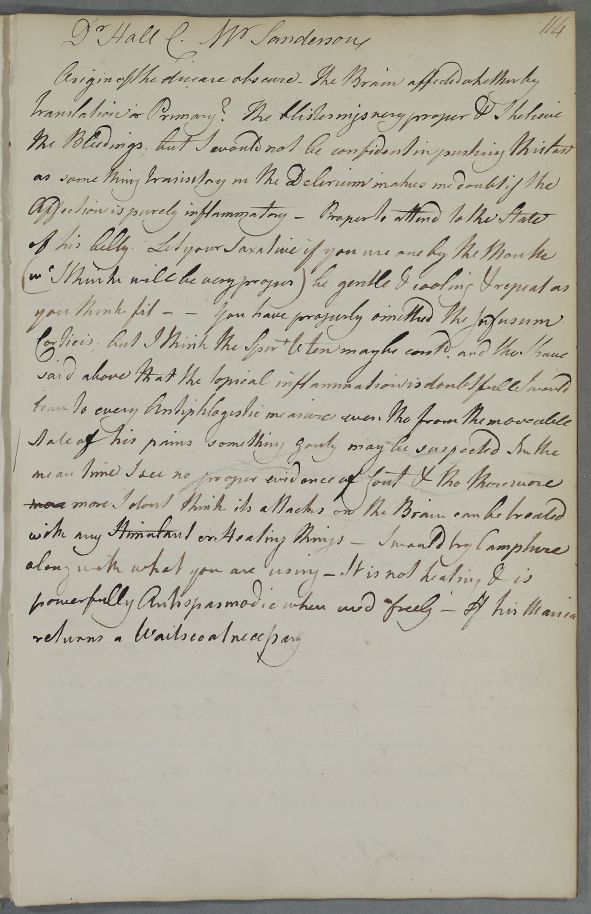 114
Dr Hall C. Mr Sanderson
Origin of the disease obscure - The Brain affected whether by
translation or Primary? The blisterings very proper & I believe
the Bleedings, but I would not be confident in pushing this last
as something transitory in the Delirium makes me doubt if the
Affection is purely inflammatory - Proper to attend to the State
of his belly. Let your Laxative if you use one by the Mouth
(wc I think will be very proper) be gentle & cooling & repeat as
you think fit - - you have properly omitted the Infusum
Corticis, but I think the Spirt may be contd. and tho I have
said above that the topical inflammation is doubtfull I would
lean to every Antiphlogistic measure even tho from the moveable
state of his pains something gouty may be suspected In the
mean time I see no proper evidence of Gout & tho there were
more I dont think its attacks on the Brain can be treated
with any Stimulant or Heating things - I would try Camphire
along with what you are using - It is not heating & is
powerfully Antispasmodic when used freely - If his Mania
returns a Waistcoat necessary